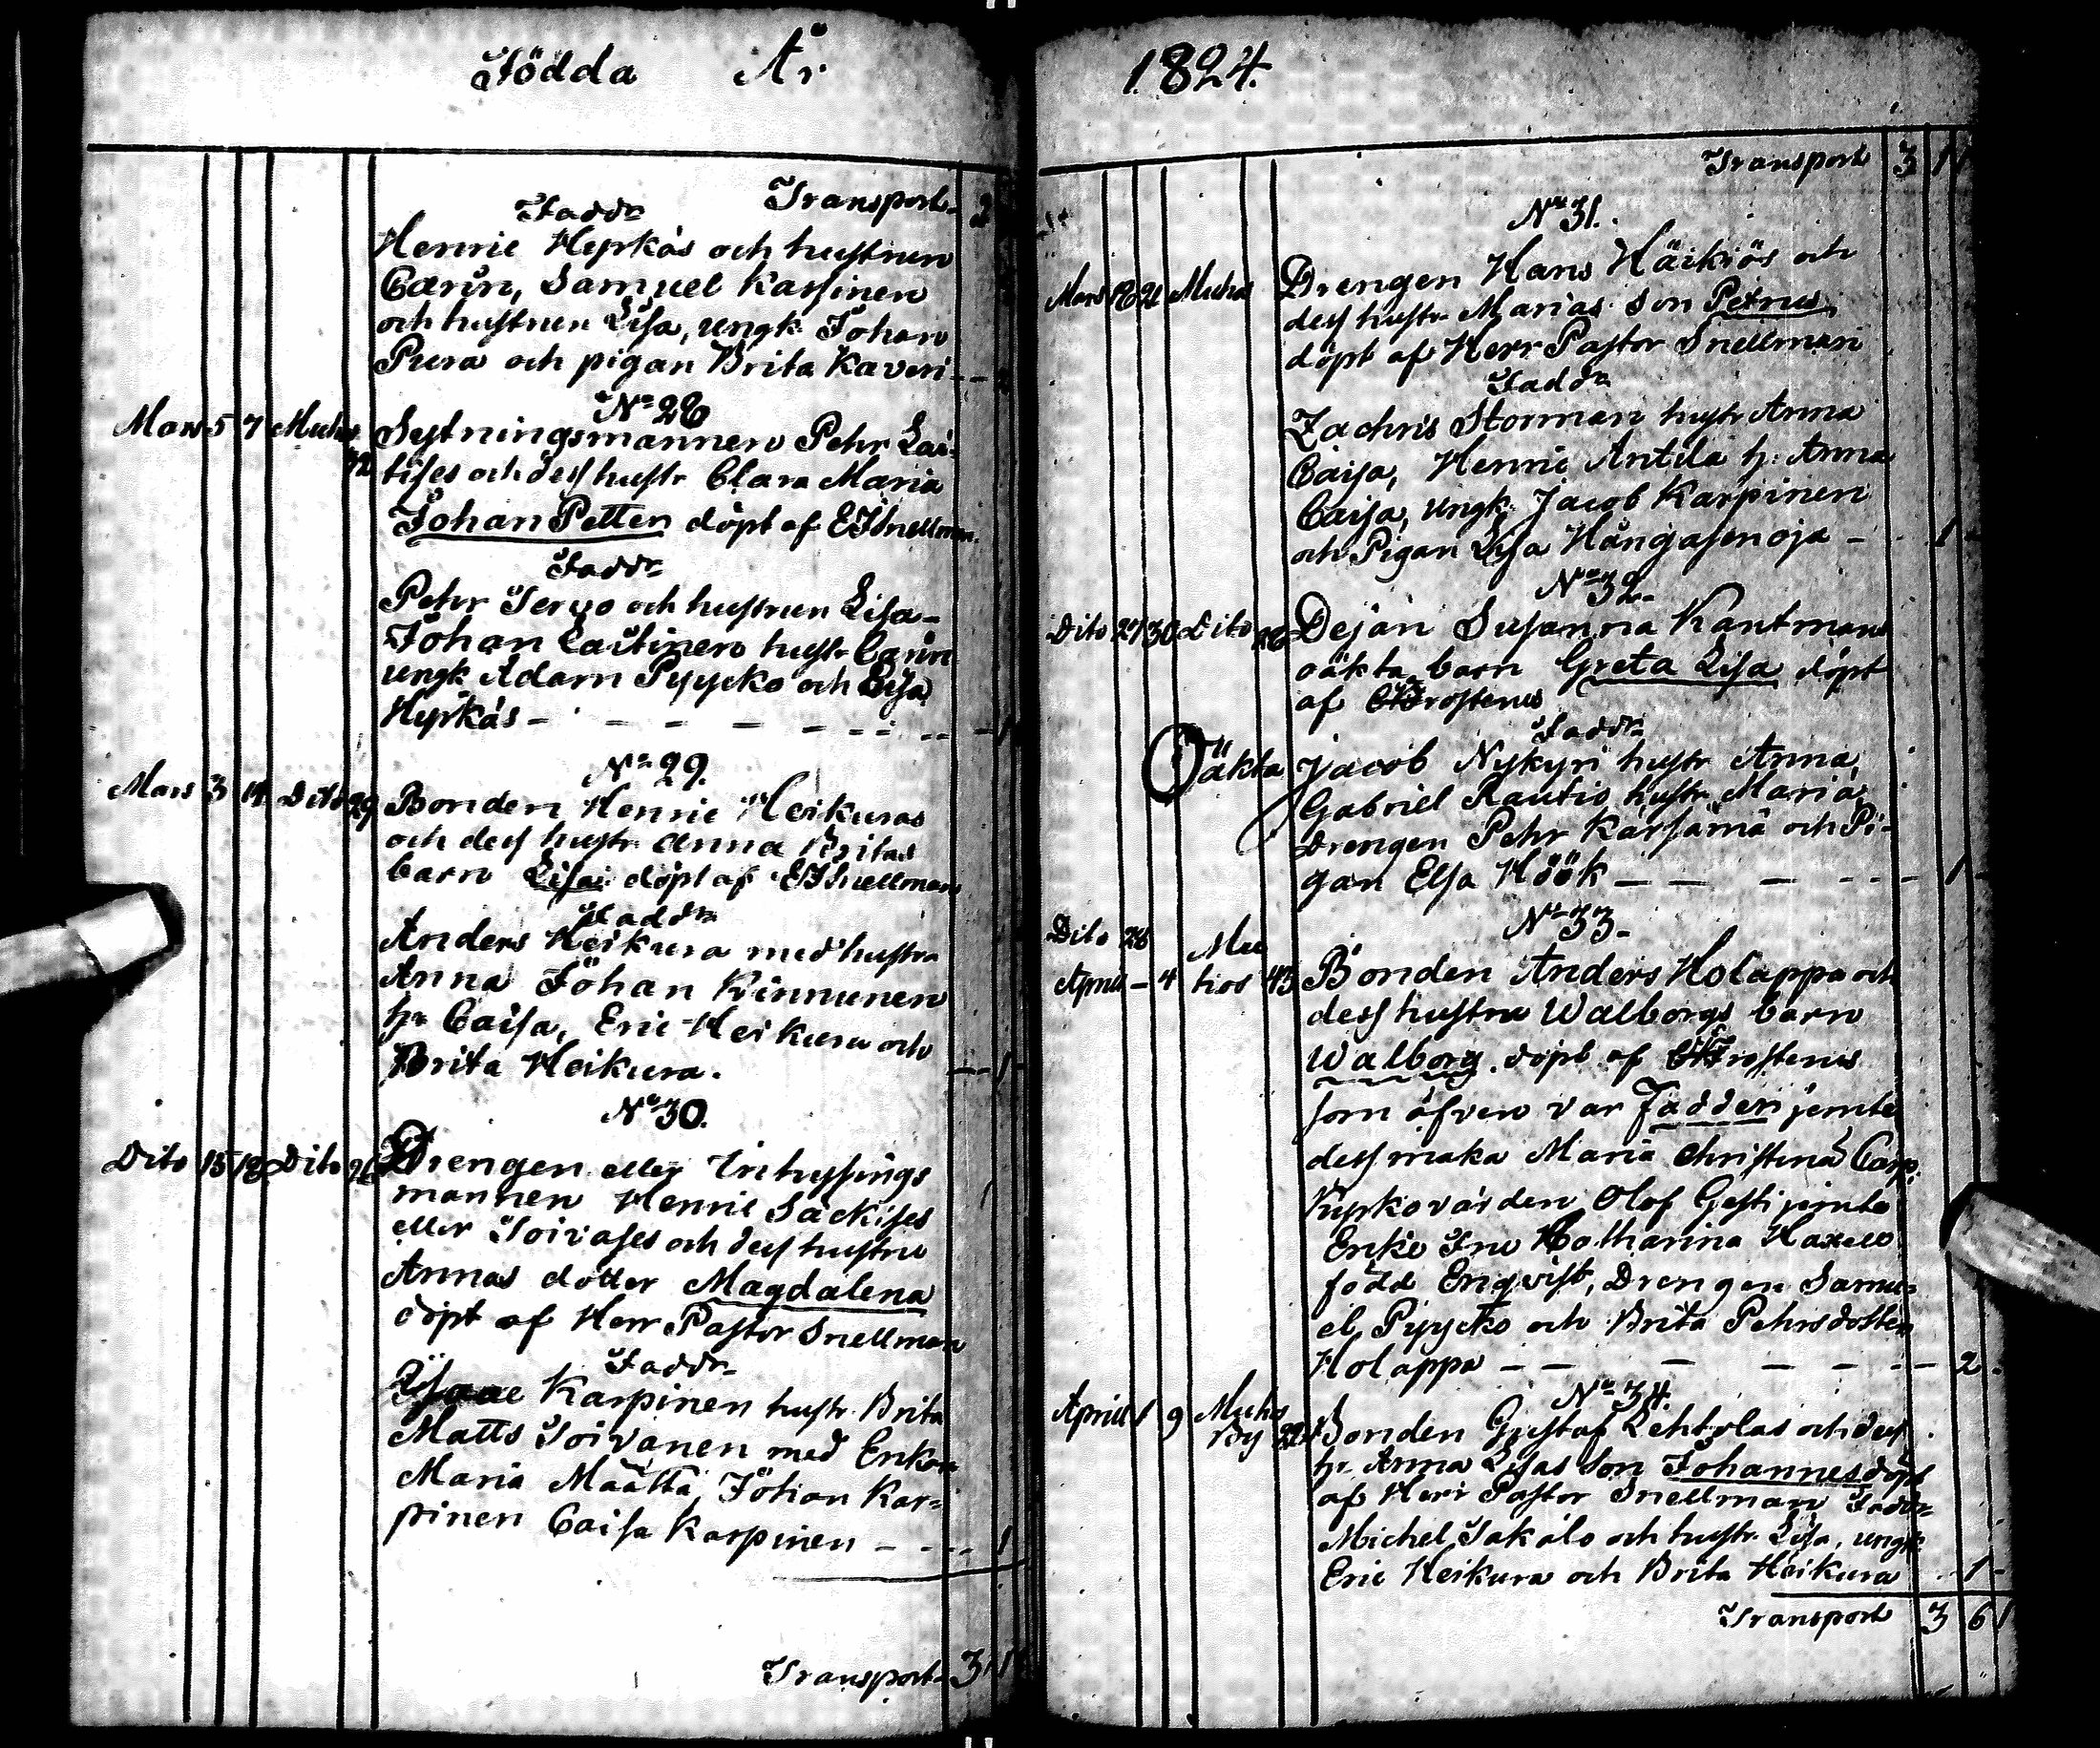 Födda År
Transport 2
Faddr
Henric Hyrkäs och hustrun
Carin, Samuel Karsinen
och hustrun Lisa, ungk Johan
Pura och pigan Brita Kaveri --
No 28
Mars 5 7 Muhos Sytningsmannen Pehr Lai-
72 tises och dess hustr Clara Maria
Johan Petter döpt af E I Snellman.
Faddr
Pehr Servo och hustrun Lisa -
Johan Laitinen hustr Carin
ungk Adam Pyycko och Lisa
Hyrkäs - - - - - - - - 1
No 29.
Mars 3 14 Dito 29 Bonden Henric Heikuras
och dess hustr Anna Britas
barn Lisa döpt af E I Snellman
Faddr
Anders Heikura med hustru
Anna Johan Kinnunen
hr Caisa, Eric Heikura och
Brita Heikura. -- 1
No 30.
Dito 15 18 Dito Drengen eller Inhysings
mannen Henric Säckises
eller Toivases och dess hustru
Annas dotter Magdalena
döpt af Herr Pastor Snellman
Faddr
Karpinen hustr Brita
Matts Toivanen med Enkan
Maria Määttä, Johan Kar-
pinen Caisa Karpinen - - - 1
Transport 3 1
1824.
Transport 3 1
No 31.
Mars 21 Muhos Drengen Hans Häikiös och
dess hustr Marias son Petrus
döpt af Herr Pastor Snellman
Faddr
Zachris Storman hustr Anna
Caisa, Henric Antila h: Anna
Caisa, ungk Jacob Karpinen
och Pigan Lisa Hångasenoja - 1
No 32.
Dito 27 30 Dito Dejan Susanna Kantmans
oäkta barn Greta Lisa döpt
af Frosterus
Faddr
Oäkta Jacob Nykyri hustr Anna,
Gabriel Rautio hustr Maria,
Drengen Pehr Karsämä och Pi-
gan Elsa Höök - - - - - 1
No 33.
Dito 28 Mu
April - 4 hos 43 Bonden Anders Holappa och
dess hustru Walborgs barn
Walborg döpt af Frosterus
som äfven var Fadder jemte
dess maka Maria Christina Carp.
Kyrkovärden Olof Gesti jemte
Enke Fru Catharina Haxell
född Enqvist, Drengen Samu-
el Pyycko och Brita Pehrsdotter
Holappa - - - - - - 2
No 34.
April 1 9 Muhos Bonden Gustaf Lehtolas och dess
By 22 hr Anna Lisas son Johannes döpt
af Herr Pastor Snellman Faddr
Michel Jakålo och hustr Lisa, ungk
Eric Heikura och Brita Heikura 1
Transport 3 6 1